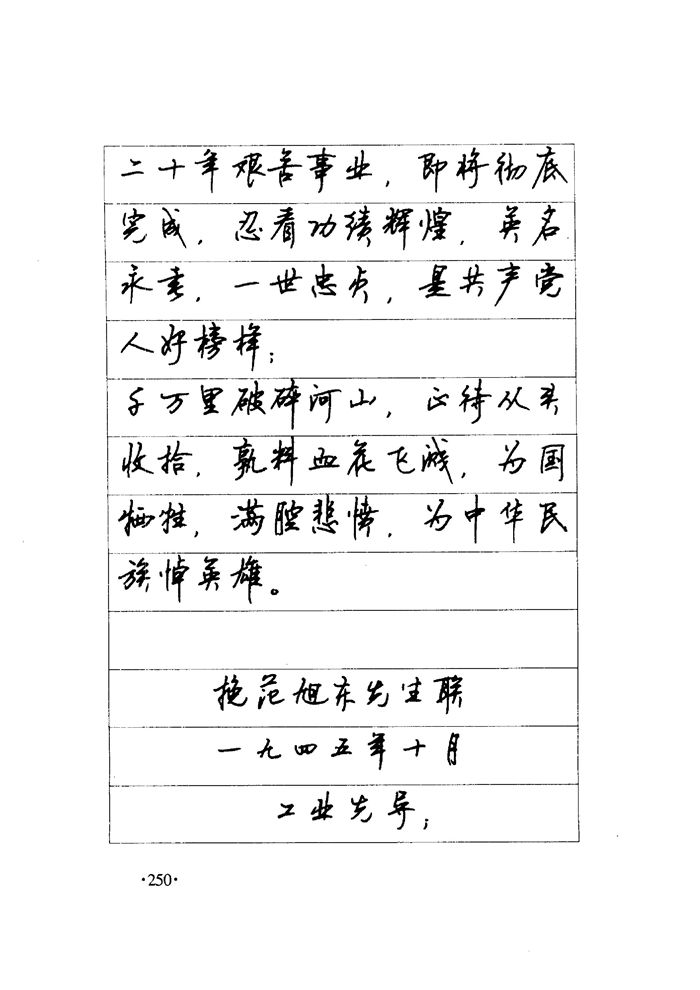 二十年艰苦事业，即将彻底
完成，忍看功绩辉煌，英名
永垂，一世忠贞，是共产党
人好榜样；
千万里破碎河山，正待从头
收拾，孰料血花飞溅，为国
牺牲，满腔悲愤，为中华民
族悼英雄。
挽范旭东先生联
一九四五年十月
工业先导；
·250·